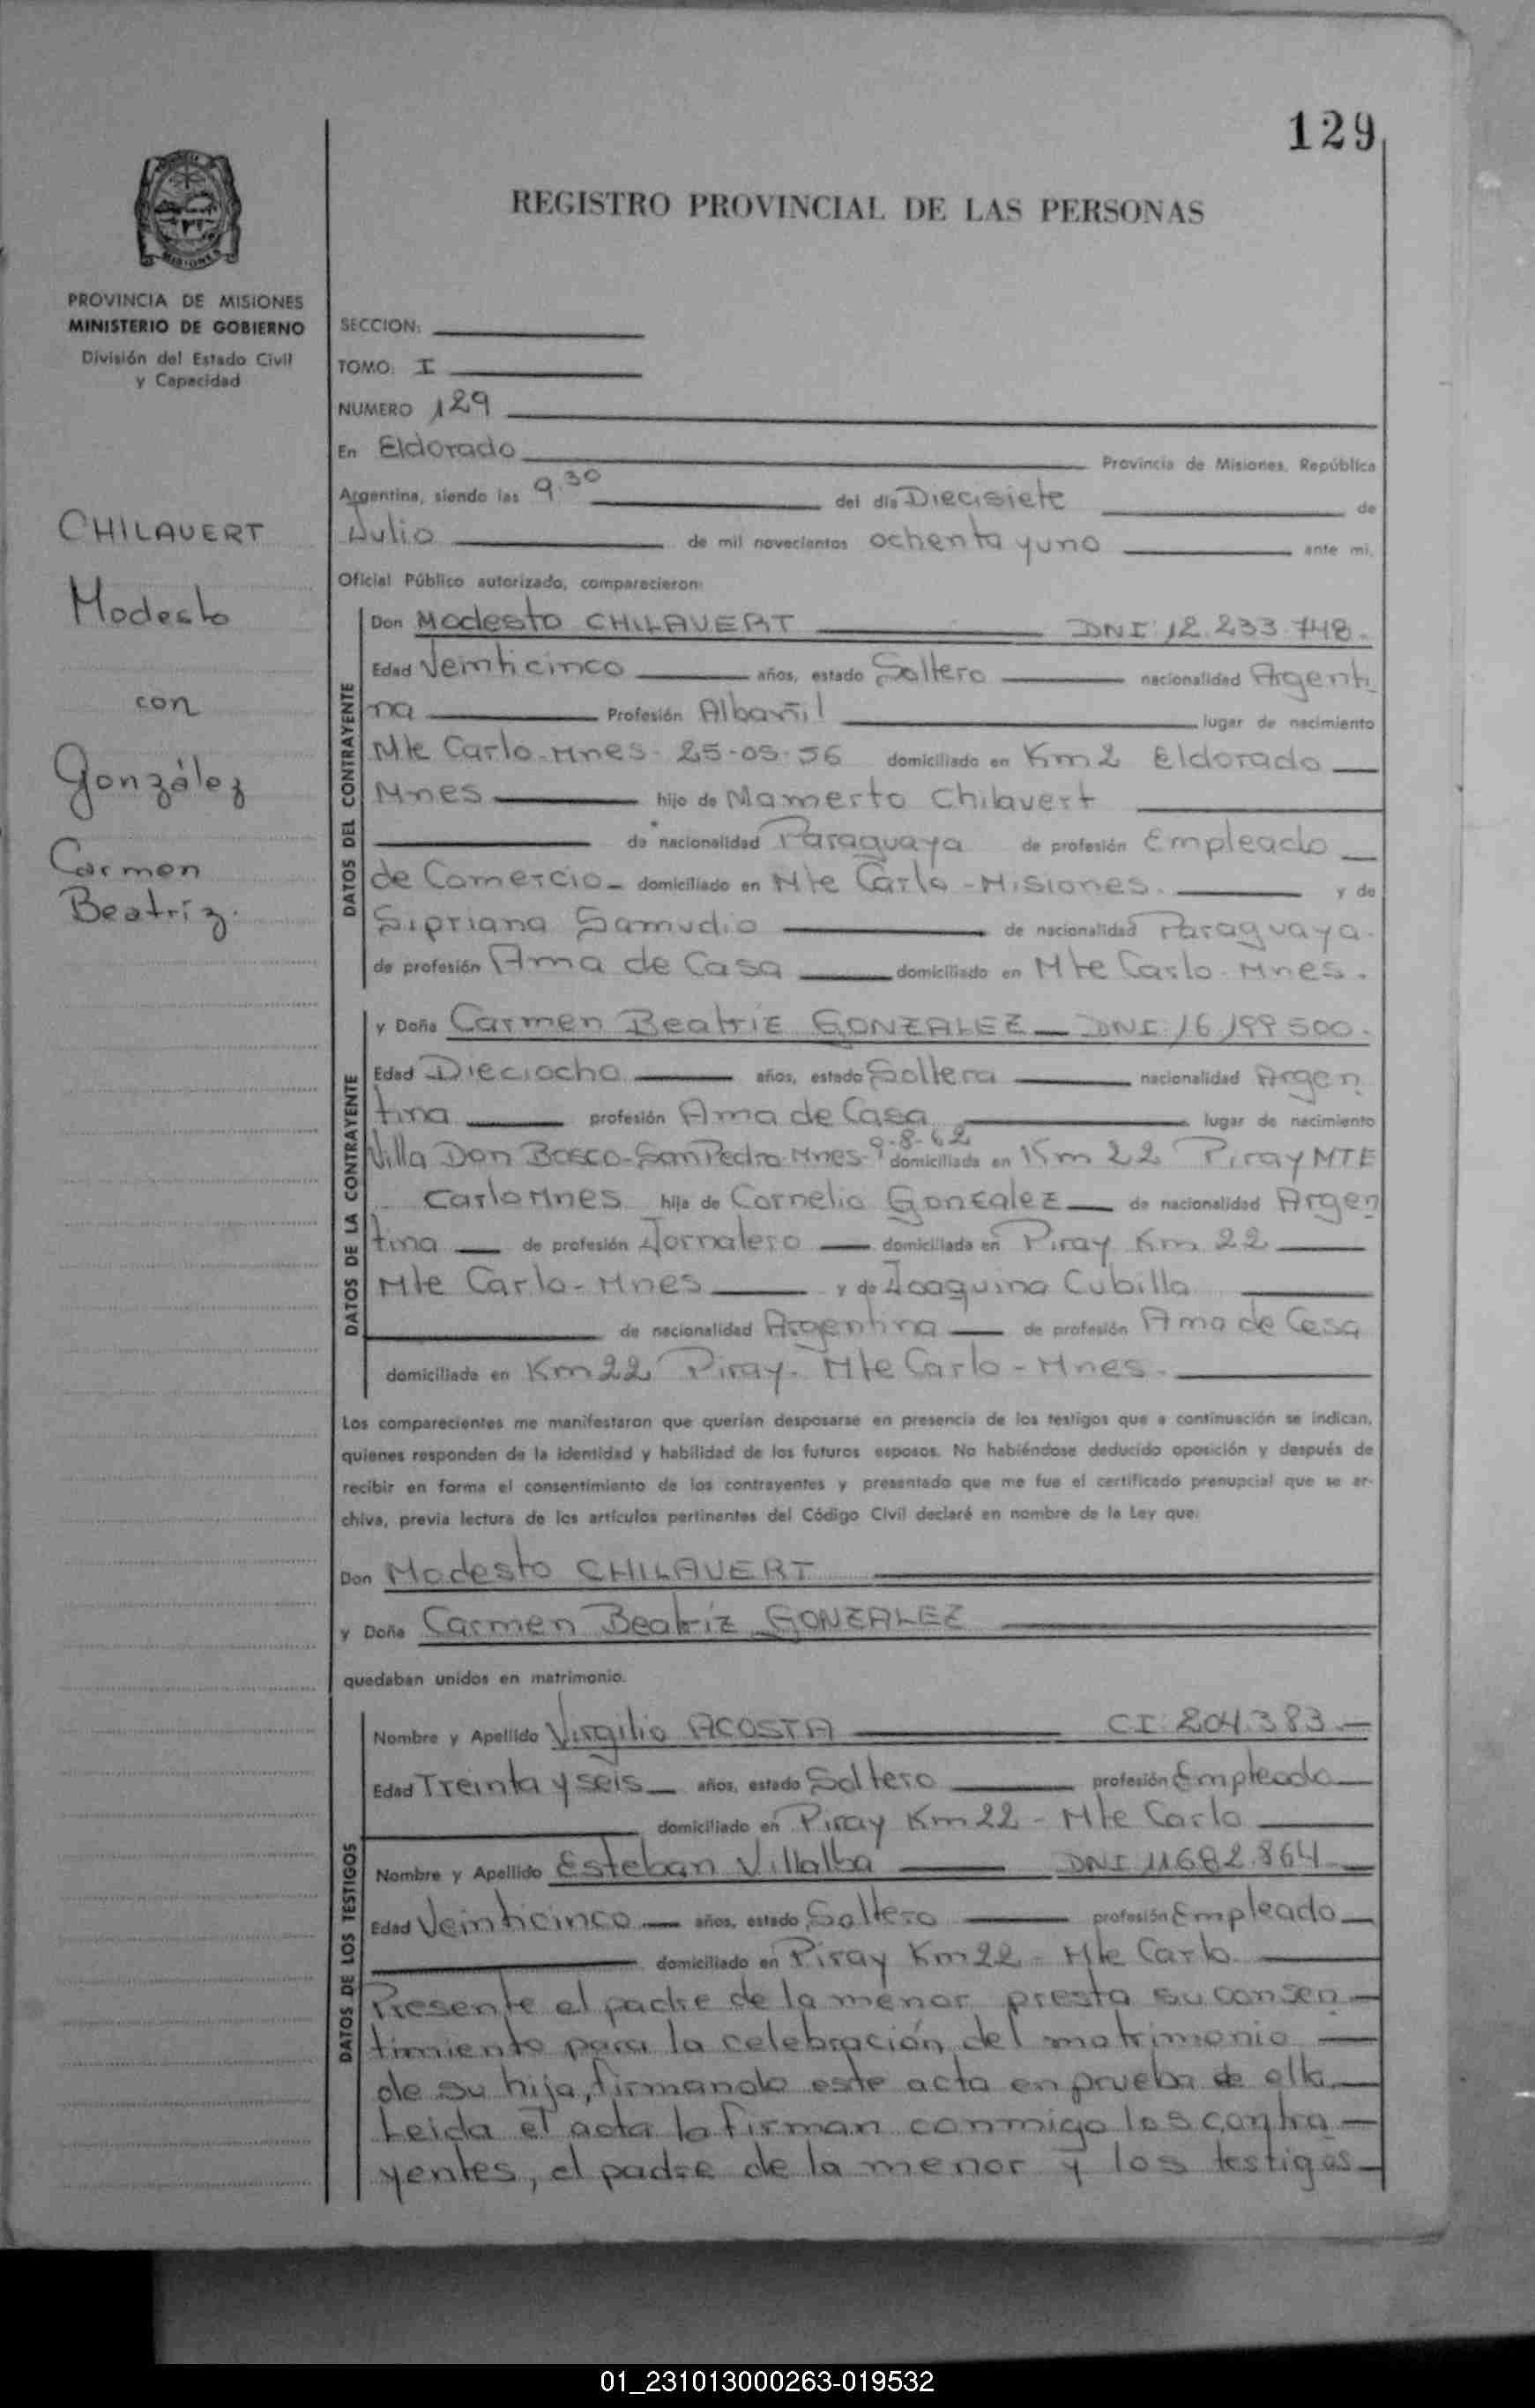 129
REGISTRO PROVINCIAL DE LAS PERSONAS
MISIONES
PROVINCIA DE MISIONES
MINISTERIO DE GOBIERNO
División del Estado Civil
y Capacidad
CHILAVERT
Modesto
con
González
Carmen
Beatríz.
SECCION:
TOMO: I
NUMERO 129
En Eldorado Provincia de Misiones, República
Argentina, siendo las 9.30 del día Diecisiete de
Julio de mil novecientos ochenta y uno ante mi,
Oficial Público autorizado, comparecieron:
DATOS DEL CONTRAYENTE
Don Modesto CHILAVERT DNI 12.233.748.
Edad Veinticinco años, estado Soltero nacionalidad Argenti
na Profesión Albañil lugar de nacimiento
Mte Carlo-Mnes- 25-05-56 domiciliado en Km 2 Eldorado
Mnes hijo de Mamerto Chilavert
de nacionalidad Paraguaya de profesión Empleado
de Comercio- domiciliado en Mte Carlo-Misiones. y de
Sipriana Samudio de nacionalidad Paraguaya.
de profesión Ama de Casa domiciliado en Mte Carlo-Mnes.
DATOS DE LA CONTRAYENTE
y Doña Carmen Beatriz GONZALEZ DNI 16.199.500.
Edad Dieciocho años, estado Soltera nacionalidad Argen
tina profesión Ama de Casa lugar de nacimiento
Villa Don Bosco-San Pedro-Mnes- 9-8-62 domiciliada en Km 22 Piray MTE
Carlo Mnes hija de Cornelio Gonzalez de nacionalidad Argen
tina de profesión Jornalero domiciliada en Piray Km 22
Mte Carlo-Mnes y de Joaquina Cubilla
de nacionalidad Argentina de profesión Ama de Casa
domiciliada en Km 22 Piray- Mte Carlo-Mnes.
Los comparecientes me manifestaron que querían desposarse en presencia de los testigos que a continuación se indican,
quienes responden de la identidad y habilidad de los futuros esposos. No habiéndose deducido oposición y después de
recibir en forma el consentimiento de los contrayentes y presentado que me fue el certificado prenupcial que se ar-
chiva, previa lectura de los artículos pertinentes del Código Civil declaré en nombre de la Ley que:
Don Modesto CHILAVERT
y Doña Carmen Beatriz GONZALEZ
quedaban unidos en matrimonio.
DATOS DE LOS TESTIGOS
Nombre y Apellido Virgilio ACOSTA CI 204.383.
Edad Treinta y seis años, estado Soltero profesión Empleado
domiciliado en Piray Km 22 - Mte Carlo
Nombre y Apellido Esteban Villalba DNI 11.682.864
Edad Veinticinco años, estado Soltero profesión Empleado
domiciliado en Piray Km 22 - Mte Carlo
Presente el padre de la menor presta su consen
timiento para la celebración del matrimonio
de su hija, firmando este acta en prueba de ello.
Leida el acta la firman conmigo los contra
yentes, el padre de la menor y los testigos
01_231013000263-019532